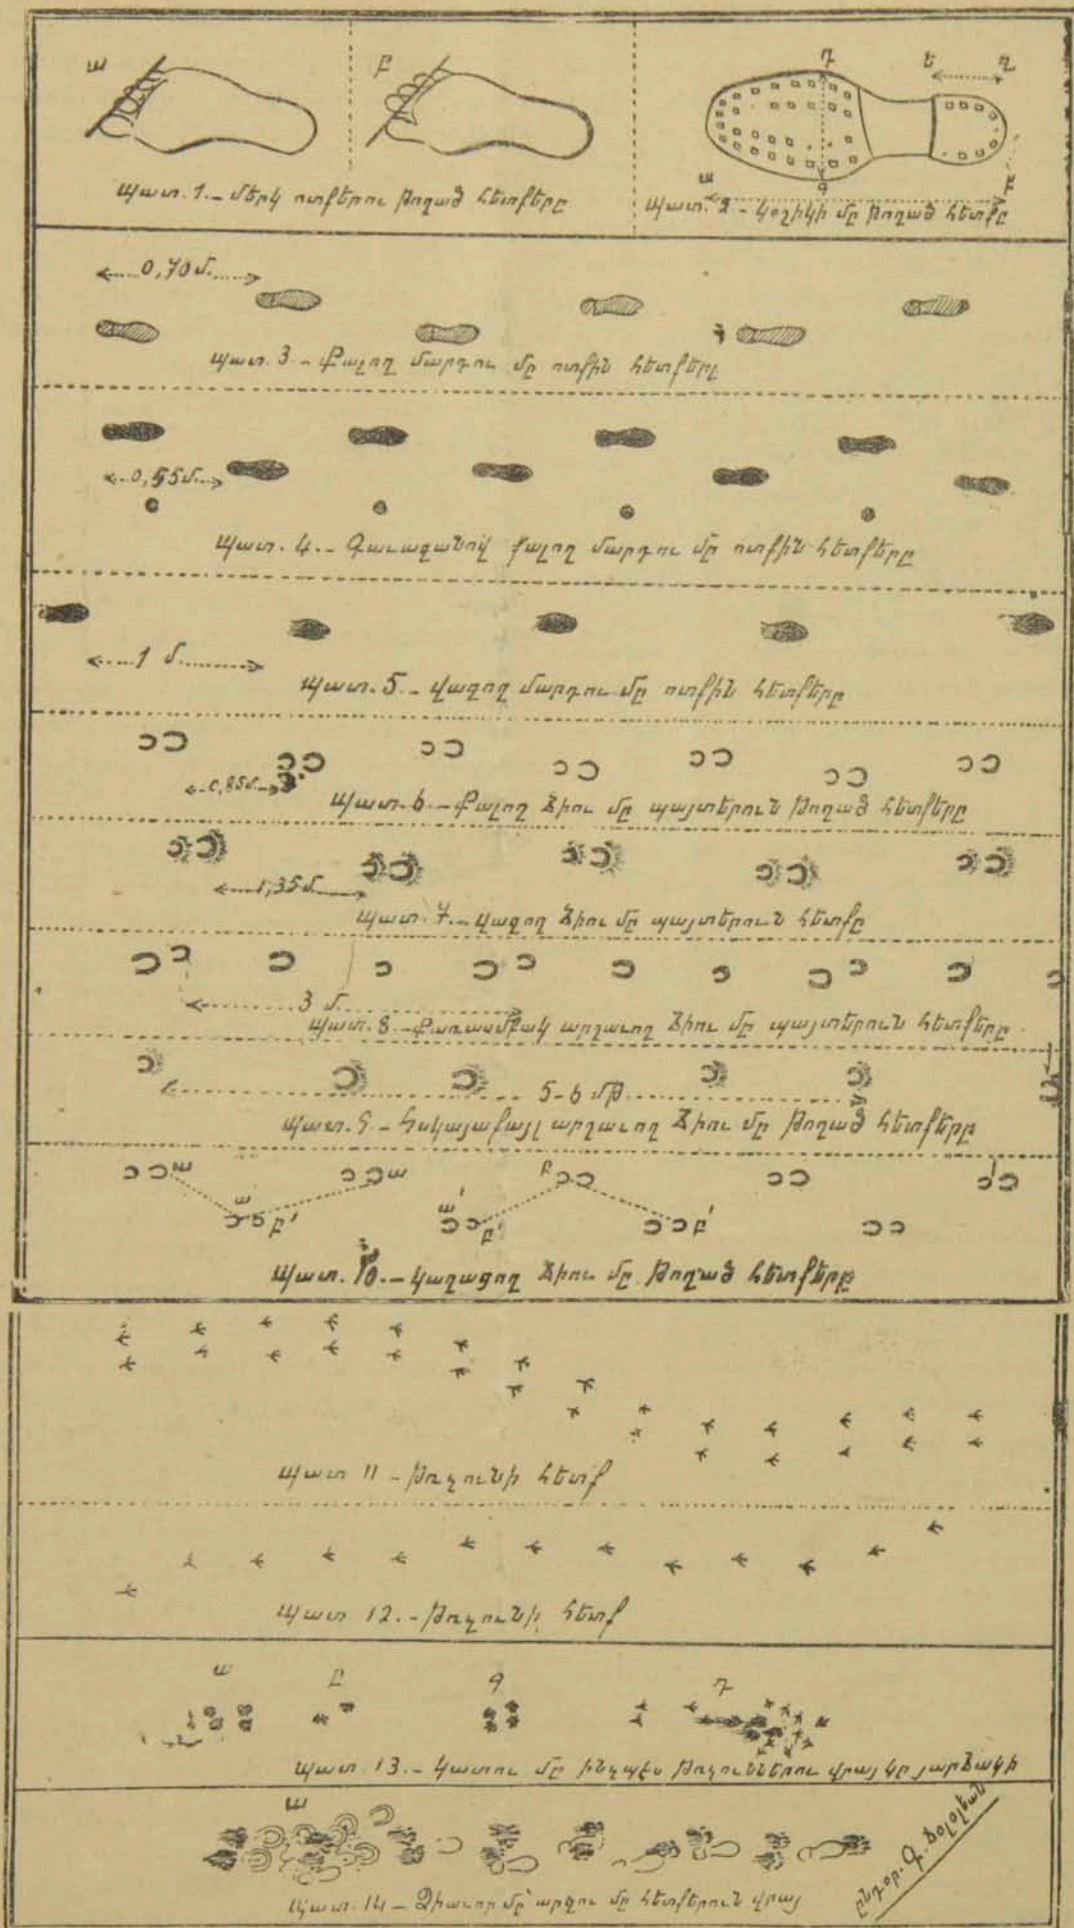 ա
բ
Դ
Ե
Զ
Պատ. 1. — Մերկ ոտքերու թողած հետքերը
ա
Գ
Բ
Պատ. 2 — Կօշիկի մը թողած հետքը
0,70 մ.
Պատ. 3 — Քալող մարդու մը ոտքին հետքերը
0,55 մ.
Պատ. 4. — Գաւազանով քալող մարդու մը ոտքին հետքերը
1 մ.
Պատ. 5. — Վազող մարդու մը ոտքին հետքերը
0,85 մ.
Պատ. 6. — Քալող ձիու մը պայտերուն թողած հետքերը
1,35 մ.
Պատ. 7. — Վազող ձիու մը պայտերուն հետքը
3 մ.
Պատ. 8. — Քառասմբակ արշաւող ձիու մը պայտերուն հետքերը
5-6 մթ.
Պատ. 9. — Հսկայաքայլ արշաւող ձիու մը թողած հետքերը
ա ա բ
ա բ' ա' բ' բ'
Պատ. 10. — Կաղացող ձիու մը թողած հետքերը
Պատ 11 — Թռչունի հետք
Պատ 12. — Թռչունի հետք
ա Բ Գ Դ
Պատ. 13. — Կատու մը ինչպէս թռչուններու վրայ կը յարձակի
ա
Պատ. 14 — Ձիաւոր մը արջու մը հետքերուն վրայ